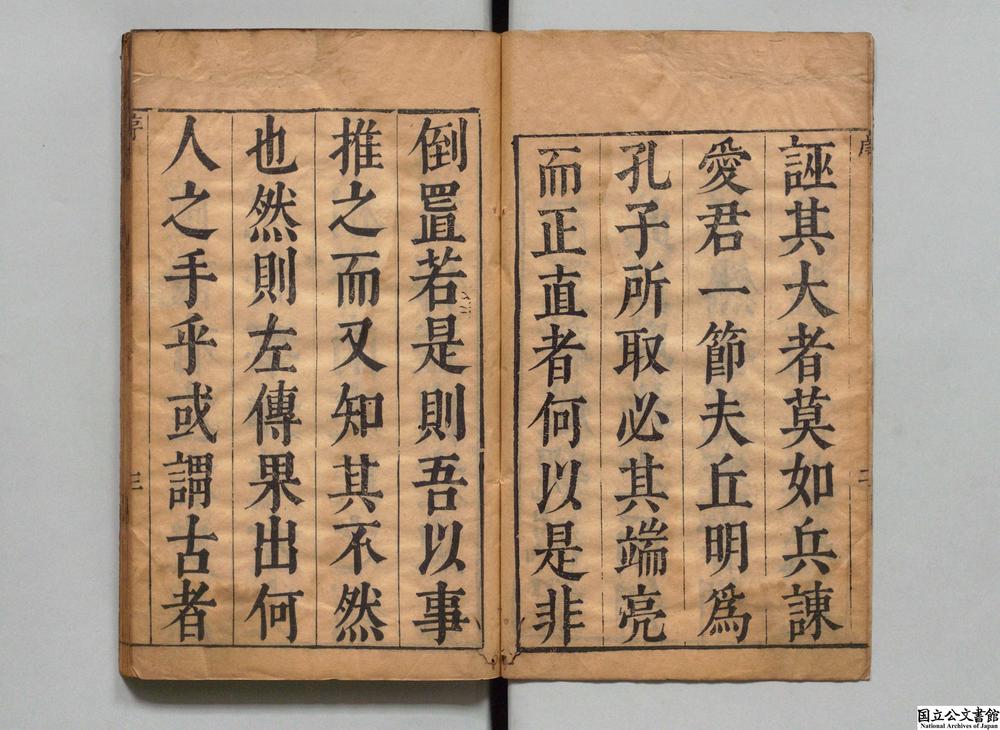 誣其大者莫如兵諫
愛君一節夫丘明爲
孔子所取必其端亮
而正直者何以是非
倒置若是則吾以事
推之而又知其不然
也然則左傳果出何
人之手乎或謂古者
三
国立公文書館
National Archives of Japan